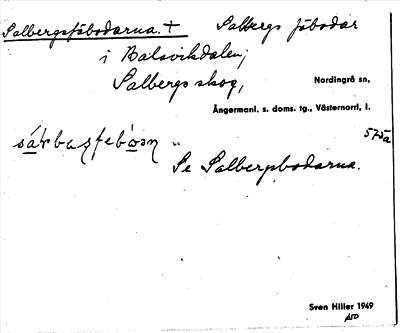 Salbergsfäbodarna. + Salbergs fäbodar
i Balsvikdalen;
Salbergs skog, Nordingrå sn,
Ångermanl. s. doms. tg., Västernorrl. l.
575a
"
Se Salbergsbodarna.
Sven Hiller 1949